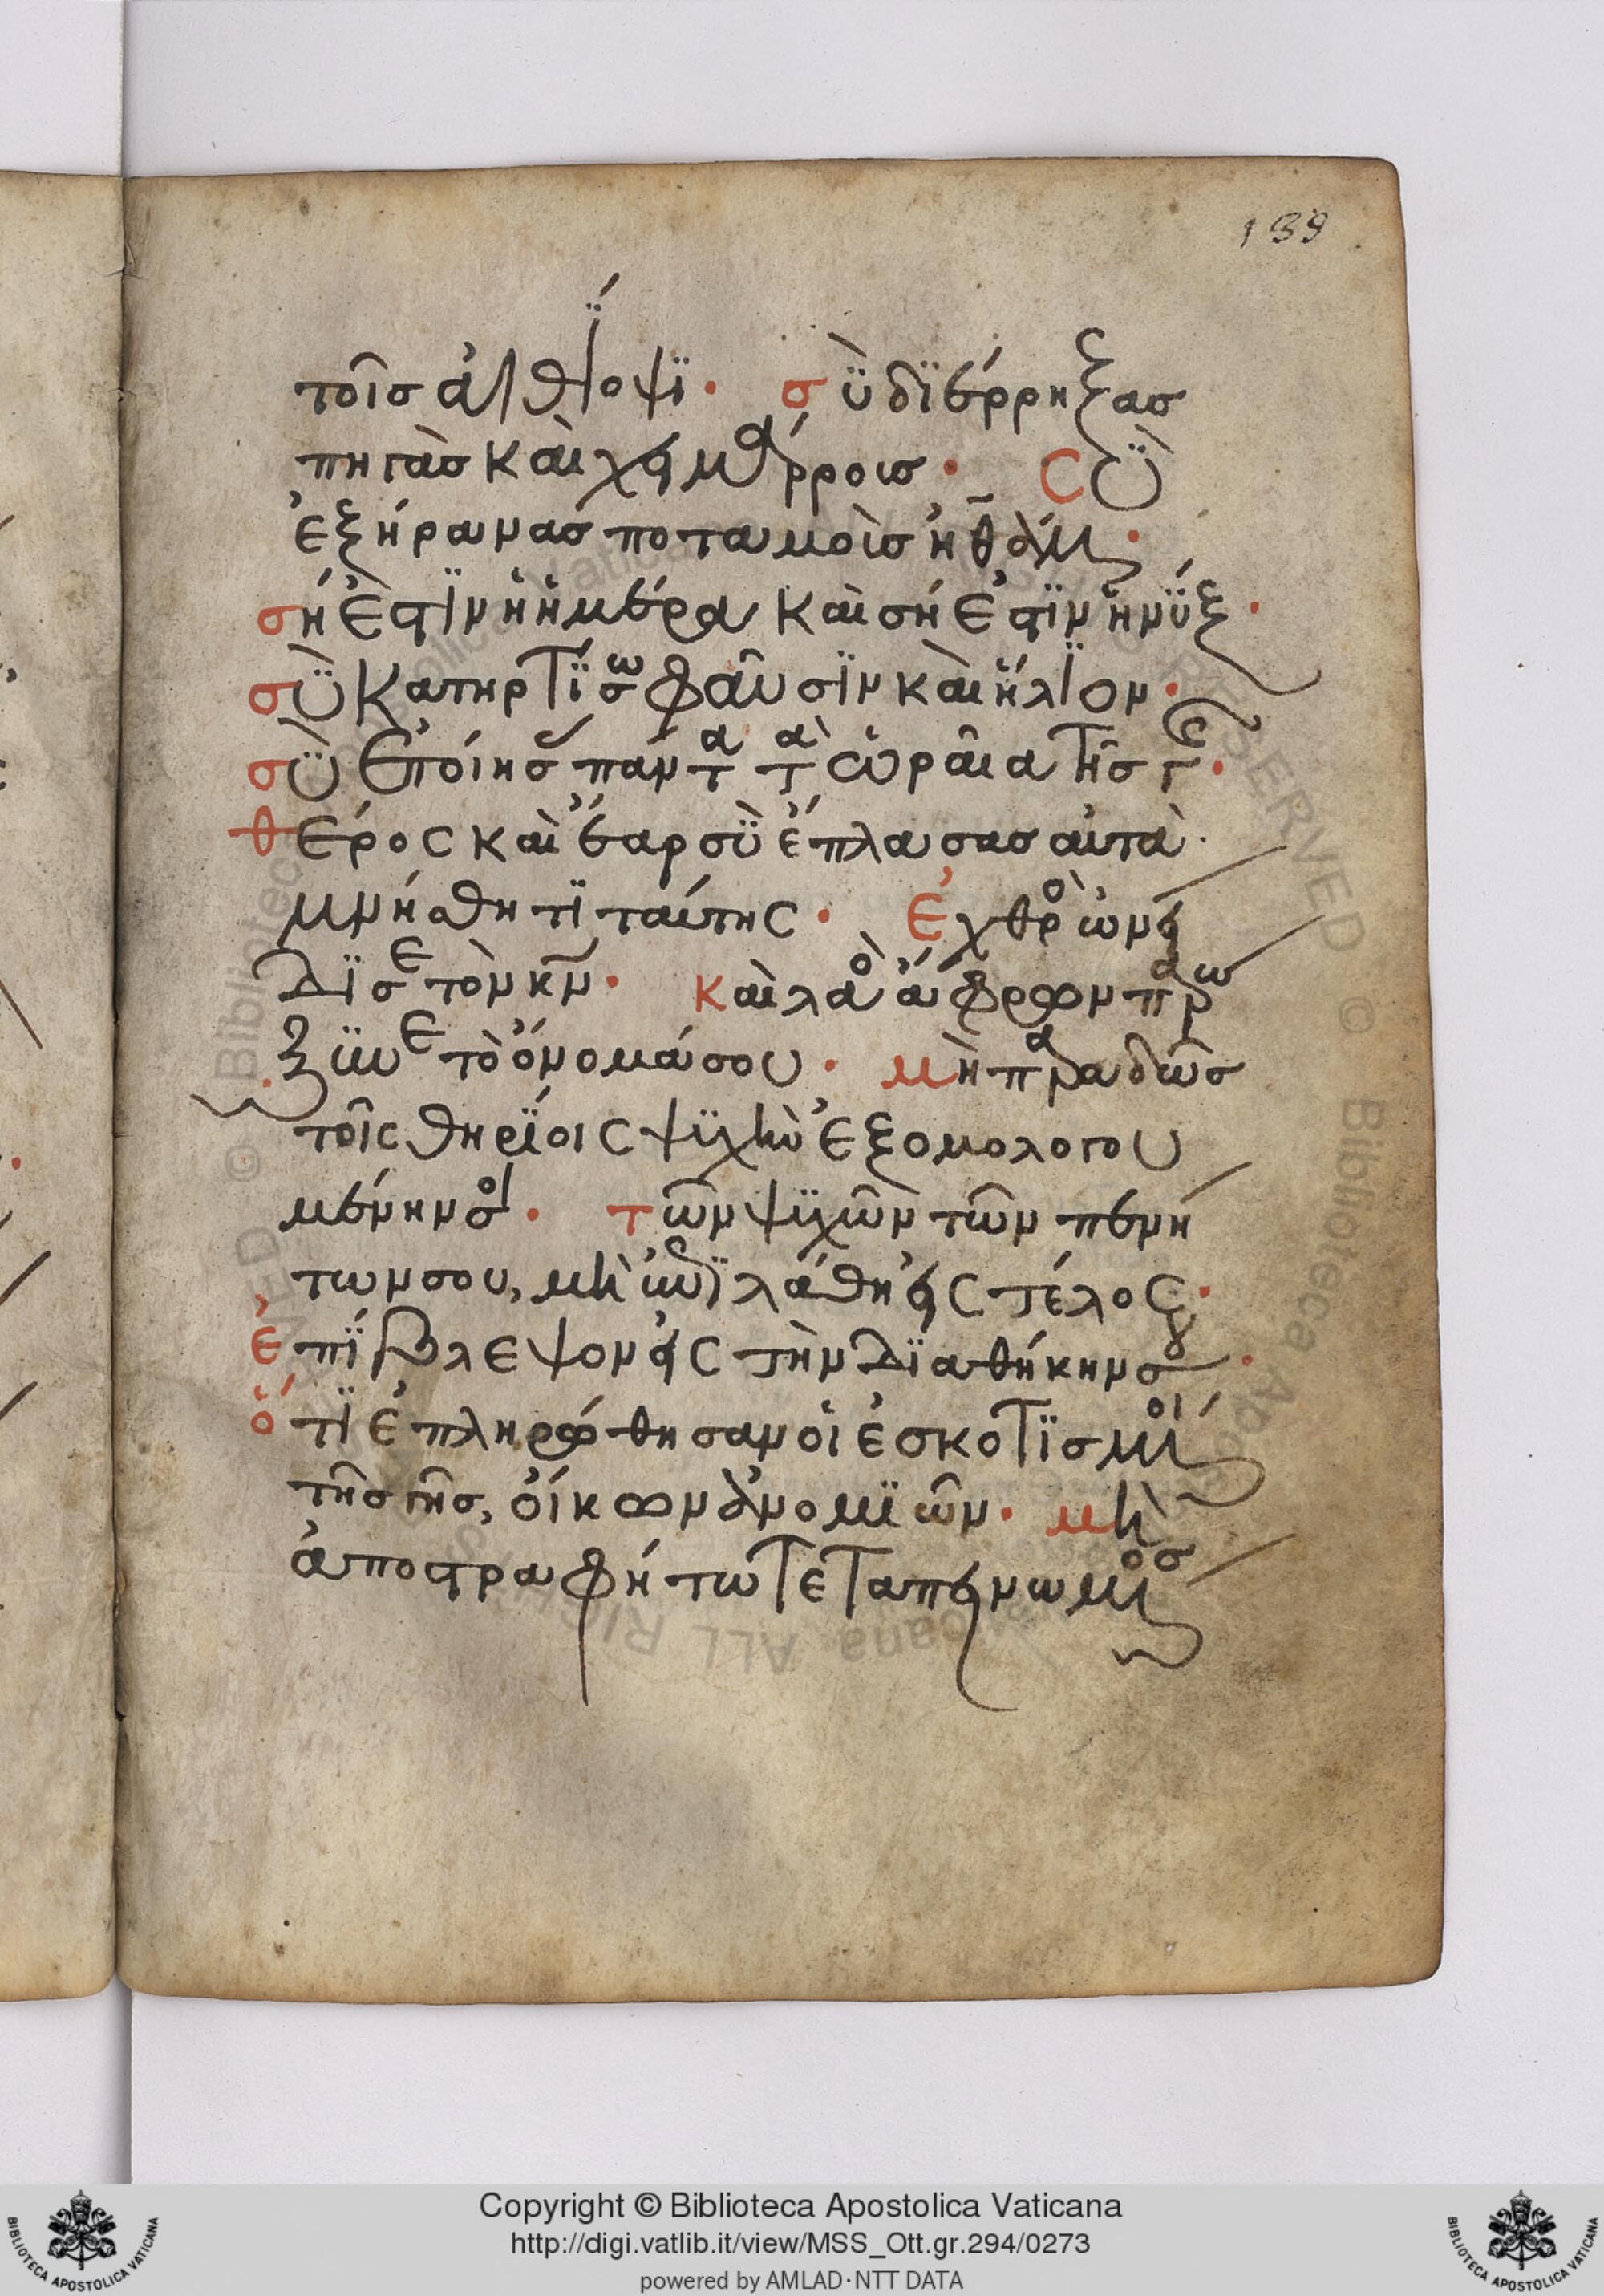 139
τοῖσ αἰθίοψϊ· σὺ δϊέρρηξασ
πηγὰσ καὶ χειμάρρουσ· Σὺ
ἐξήρανασ ποταμοὺσ ἠθάμ·
σή ἐστϊν ἡ ἡμέρα καὶ σή ἐστϊν ἡ νύξ·
σὺ κατηρτίσω φαῦσϊν καὶ ἥλϊον·
σὺ ἐποίησ πάντα τὰ ὡραῖα τῆσ γ·
θέρος καὶ ἔαρ σὺ ἔπλασασ αὐτὰ·
μνήσθητϊ ταύτης· Ἐχθρὸ ὠνεί
δϊσε τὸν κν· Καὶ λαὸ ἄφρων παρω
ξυνε τὸ ὄνομά σου· μὴ παραδῶσ
τοῖς θηρίοις ψϋχὴν ἐξομολογου
μένην σοι· τῶν ψϋχῶν τῶν πενή
των σου, μὴ ἐπϊλάθη εἰς τέλος·
ἐπίβλεψον εἰς τὴν δϊαθήκην σου·
ὅτϊ ἐπληρώθησαν οἱ ἐσκοτϊσμοί
τῆσ γῆσ, οἴκων ἀνομϊῶν· μὴ
ἀποστραφήτω τεταπεινωμοσ
Copyright © Biblioteca Apostolica Vaticana
http://digi.vatlib.it/view/MSS_Ott.gr.294/0273
powered by AMLAD·NTT DATA
BIBLIOTECA APOSTOLICA VATICANA
BIBLIOTECA APOSTOLICA VATICANA